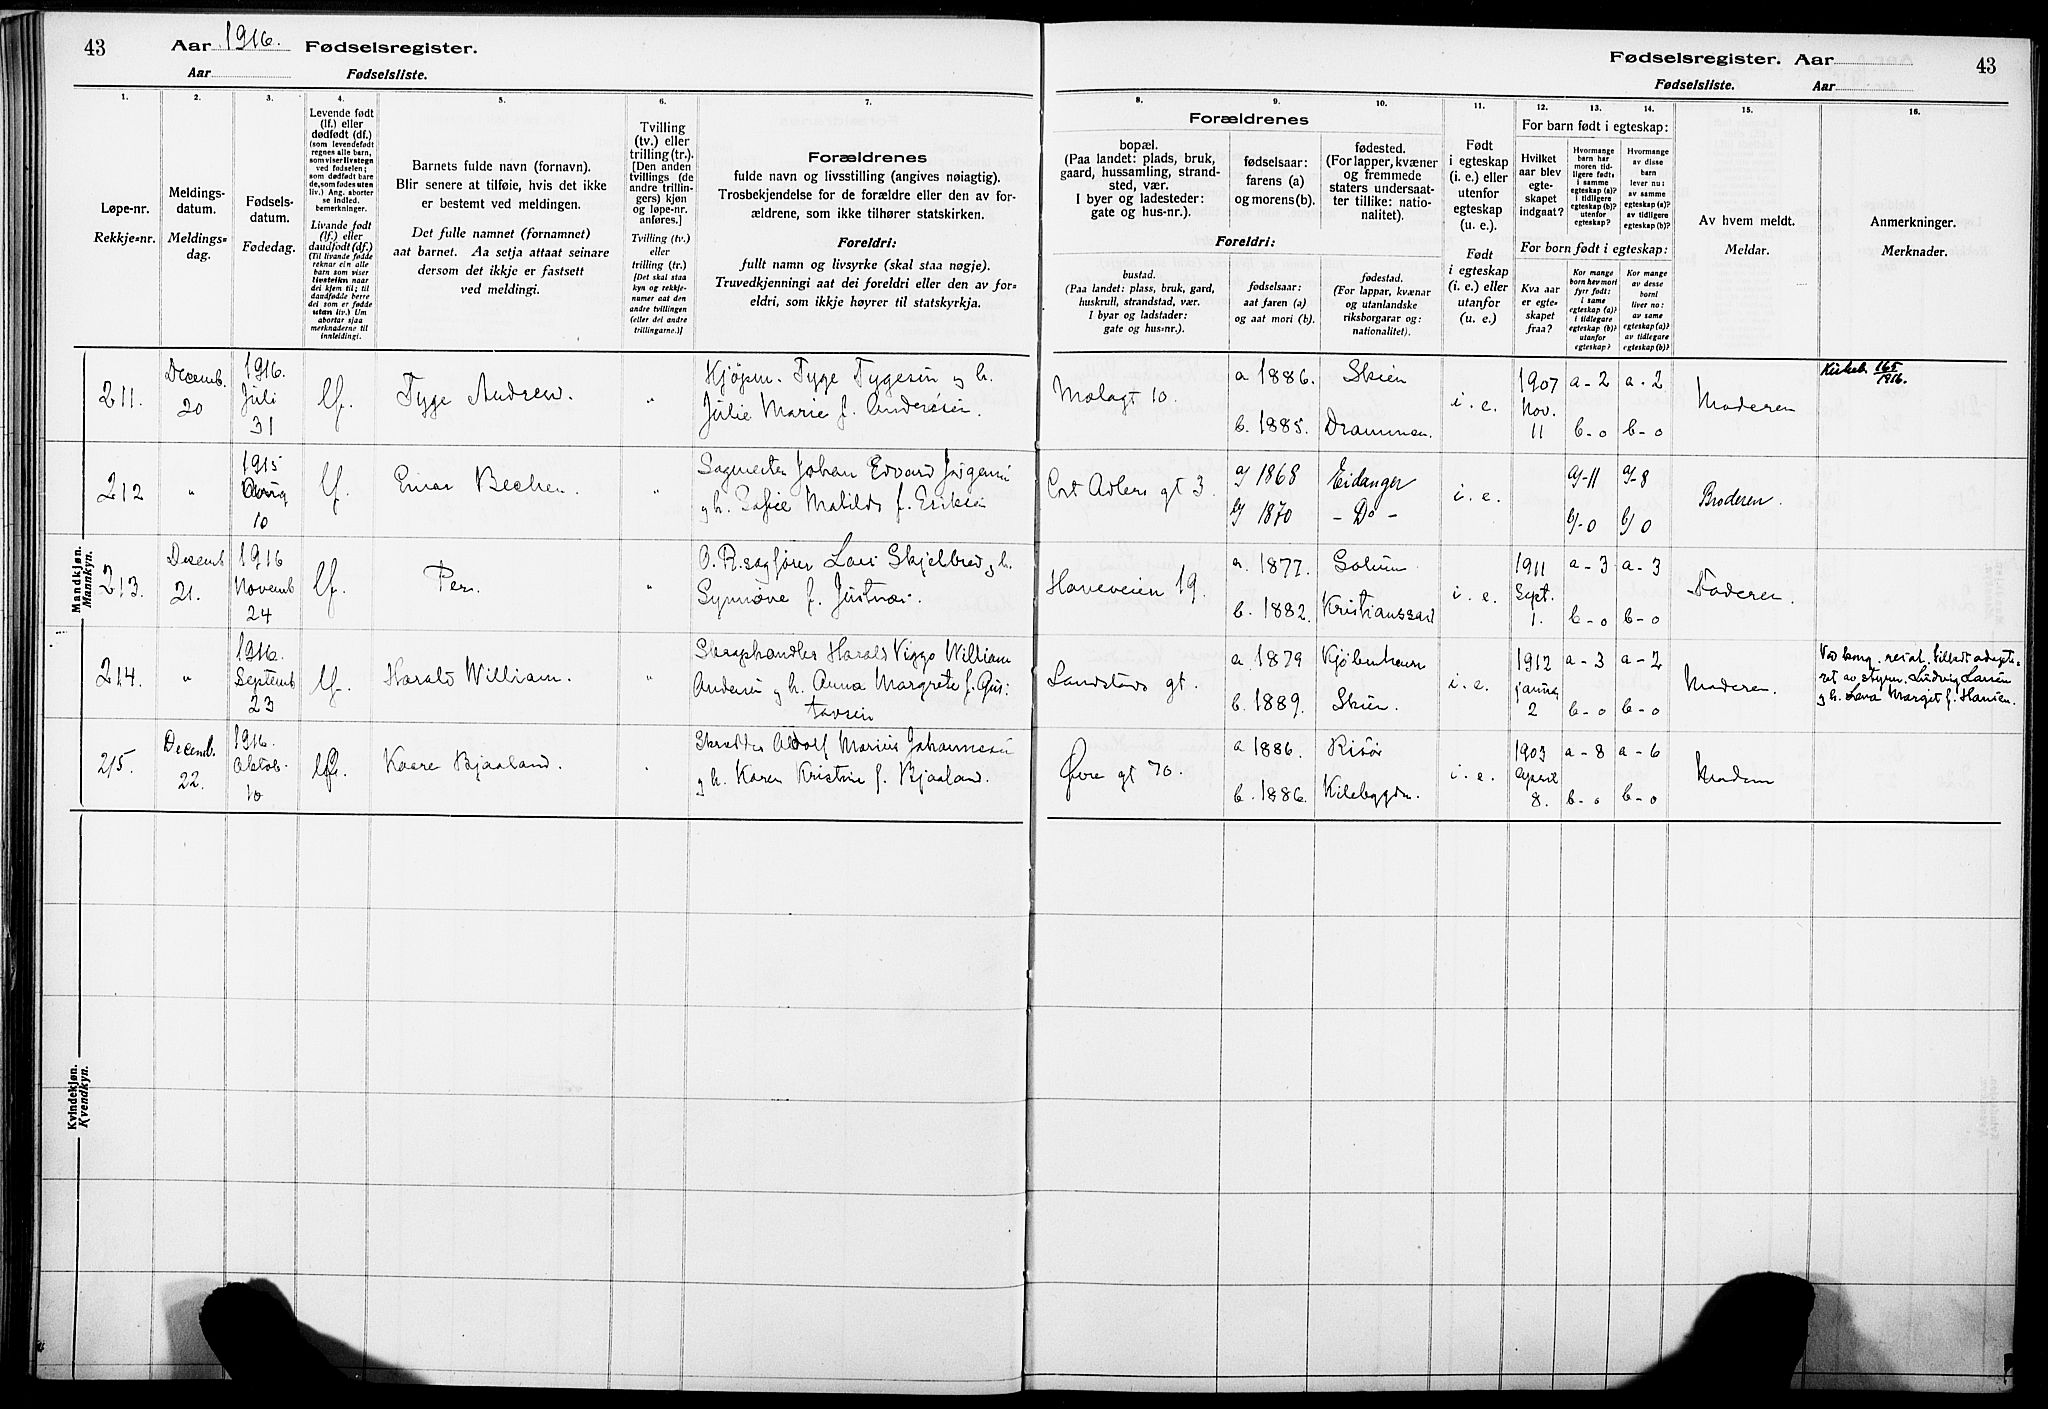 43
Aar 1916. Fødselsregister.
Aar Fødselsliste.
Fødselsregister. Aar
43
Fødselsliste. Aar
1.
Løpe-nr.
Rekkje-nr.
2.
Meldings-
datum.
Meldings-
dag.
3.
Fødsels-
datum.
Fødedag.
4.
Levende født
(lf.) eller
dødfødt (df.)
(som levendefødt
regnes alle barn,
som viser livstegn
ved fødselen;
som dødfødt bare
de, som fødes uten
liv.) Ang. aborter
se indled.
bemerkninger.
Livande født
(lf.) eller
daudfødt (df.)
(Til livande fødde
reknar ein alle
barn som viser
livsteikn naar
dei kjem til; til
daudfødde berre
dei som er fødde
utan liv.) Um
abortar sjaa
merknaderne til
innleidingi.
5.
Barnets fulde navn (fornavn).
Blir senere at tilføie, hvis det ikke
er bestemt ved meldingen.
Det fulle namnet (fornamnet)
aat barnet. Aa setja attaat seinare
dersom det ikkje er fastsett
ved meldingi.
6.
Tvilling
(tv.) eller
trilling (tr.).
[Den anden
tvillings (de
andre trillin-
gers) kjøn
og løpe-nr.
anføres.]
Tvilling (tv.)
eller
trilling (tr.)
[Det skal staa
kyn og rekkje-
numer aat den
andre tvillingen
(eller dei andre
trillingarne.)]
7.
Forældrenes
fulde navn og livsstilling (angives nøiagtig).
Trosbekjendelse for de forældre eller den av for-
ældrene, som ikke tilhører statskirken.
Foreldri:
fullt namn og livsyrke (skal staa nøgje).
Truvedkjenningi aat dei foreldri eller den av for-
eldri, som ikkje høyrer til statskyrkja.
Forældrenes
8.
bopæl.
(Paa landet: plads, bruk,
gaard, hussamling, strand-
sted, vær.
I byer og ladesteder:
gate og hus-nr.).
9.
fødselsaar:
farens (a)
og morens (b).
10.
fødested.
(For lapper, kvæner
og fremmede
staters undersaat-
ter tillike: natio-
nalitet).
Foreldri:
bustad.
(Paa landet: plass, bruk, gard,
huskrull, strandstad, vær.
I byar og ladstader:
gate og hus-nr.).
fødselsaar:
aat faren (a)
og aat mori (b).
fødestad.
(For lappar, kvænar
og utanlandske
riksborgarar og:
nationalitet).
11.
Født
i egteskap
(i. e.) eller
utenfor
egteskap
(u. e.).
Født
i egteskap
(i. e.) eller
utanfor
(u. e.)
For barn født i egteskap:
12.
Hvilket
aar blev
egte-
skapet
indgaat?
13.
Hvormange
barn har
moren tid-
ligere født:
i samme
egteskap (a)?
i tidligere
egteskap (b)?
utenfor
egteskap?
14.
Hvormange
av disse
barn
lever nu:
av samme
egteskap (a)?
av tidligere
egteskap (b)?
For born født i egteskap:
Kva aar
er egte-
skapet
fraa?
Kor mange
born hev mori
fyrr født:
i same
egteskap (a)?
i tidlegare
egteskap (b)?
utanfor
egteskap?
Kor mange
av desse
borni
liver no:
av same
egteskap (a)?
av tidlegare
egteskap (b)?
15.
Av hvem meldt.
Meldar.
16.
Anmerkninger.
Merknader.
Mandkjøn.
Mannkyn.
211. Decemb. 20 1916. Juli 31 lf. Tyge Andreas. " Kjøpm. Tyge Tygesen og h.
Julie Marie f. Andersen.
Molagt 10. a 1886. Skien
b. 1885. Drammen. i. e. 1907 Nov. 11 a - 2 b - 0 a - 2 b - 0 Moderen Kirkeb. 165/1916.
212 " 1915 10 lf. Einar " Sagmester Johan Edvard
og h. Sofie Matilde f. Eriksen
Cort Adlers gt 3. a) 1868 Eidanger
b) 1870 - Do - i. e. a) - 11 b) - 0 a) - 8 b) 0 Broderen.
213. Decemb 21. 1916 Novemb 24 lf. Per. " O.R.sagfører Lars Skjelbred og h.
Synnøve f. Justnæs.
Haveveien 19. a. 1877. Solum.
b. 1882. Kristianssand i. e. 1911 Sept. 1. a - 3 b - 0 a - 3 b - 0 Faderen.
214. " 1916. Septemb 23 lf. Harald William. " Skraphandler Harald Viggo William
Andersen og h. Anna Margrete f. Gus-
tavsen
Landstads gt. a. 1879 Kjøbenhavn
b. 1889. Skien. i. e. 1912 januar 2 a - 3 b - 0 a - 2 b - 0 Moderen. Ved kong. resol. tilladt adopte-
ret av styrm. Ludvig Larsen
og h. Lena Margit f. Hansen.
215. Decemb. 22. 1916. Oktob. 10 lf. Kaare Bjaaland. " Skrædder Adolf Marius Johannesen
og h. Karen Kristine f. Bjaaland.
Øvre gt 70. a 1886. Risør
b. 1886. Kilebygden. i. e. 1903 April 8. a - 8 b - 0 a - 6 b - 0 Moderen
Kvindekjøn.
Kvendkyn.